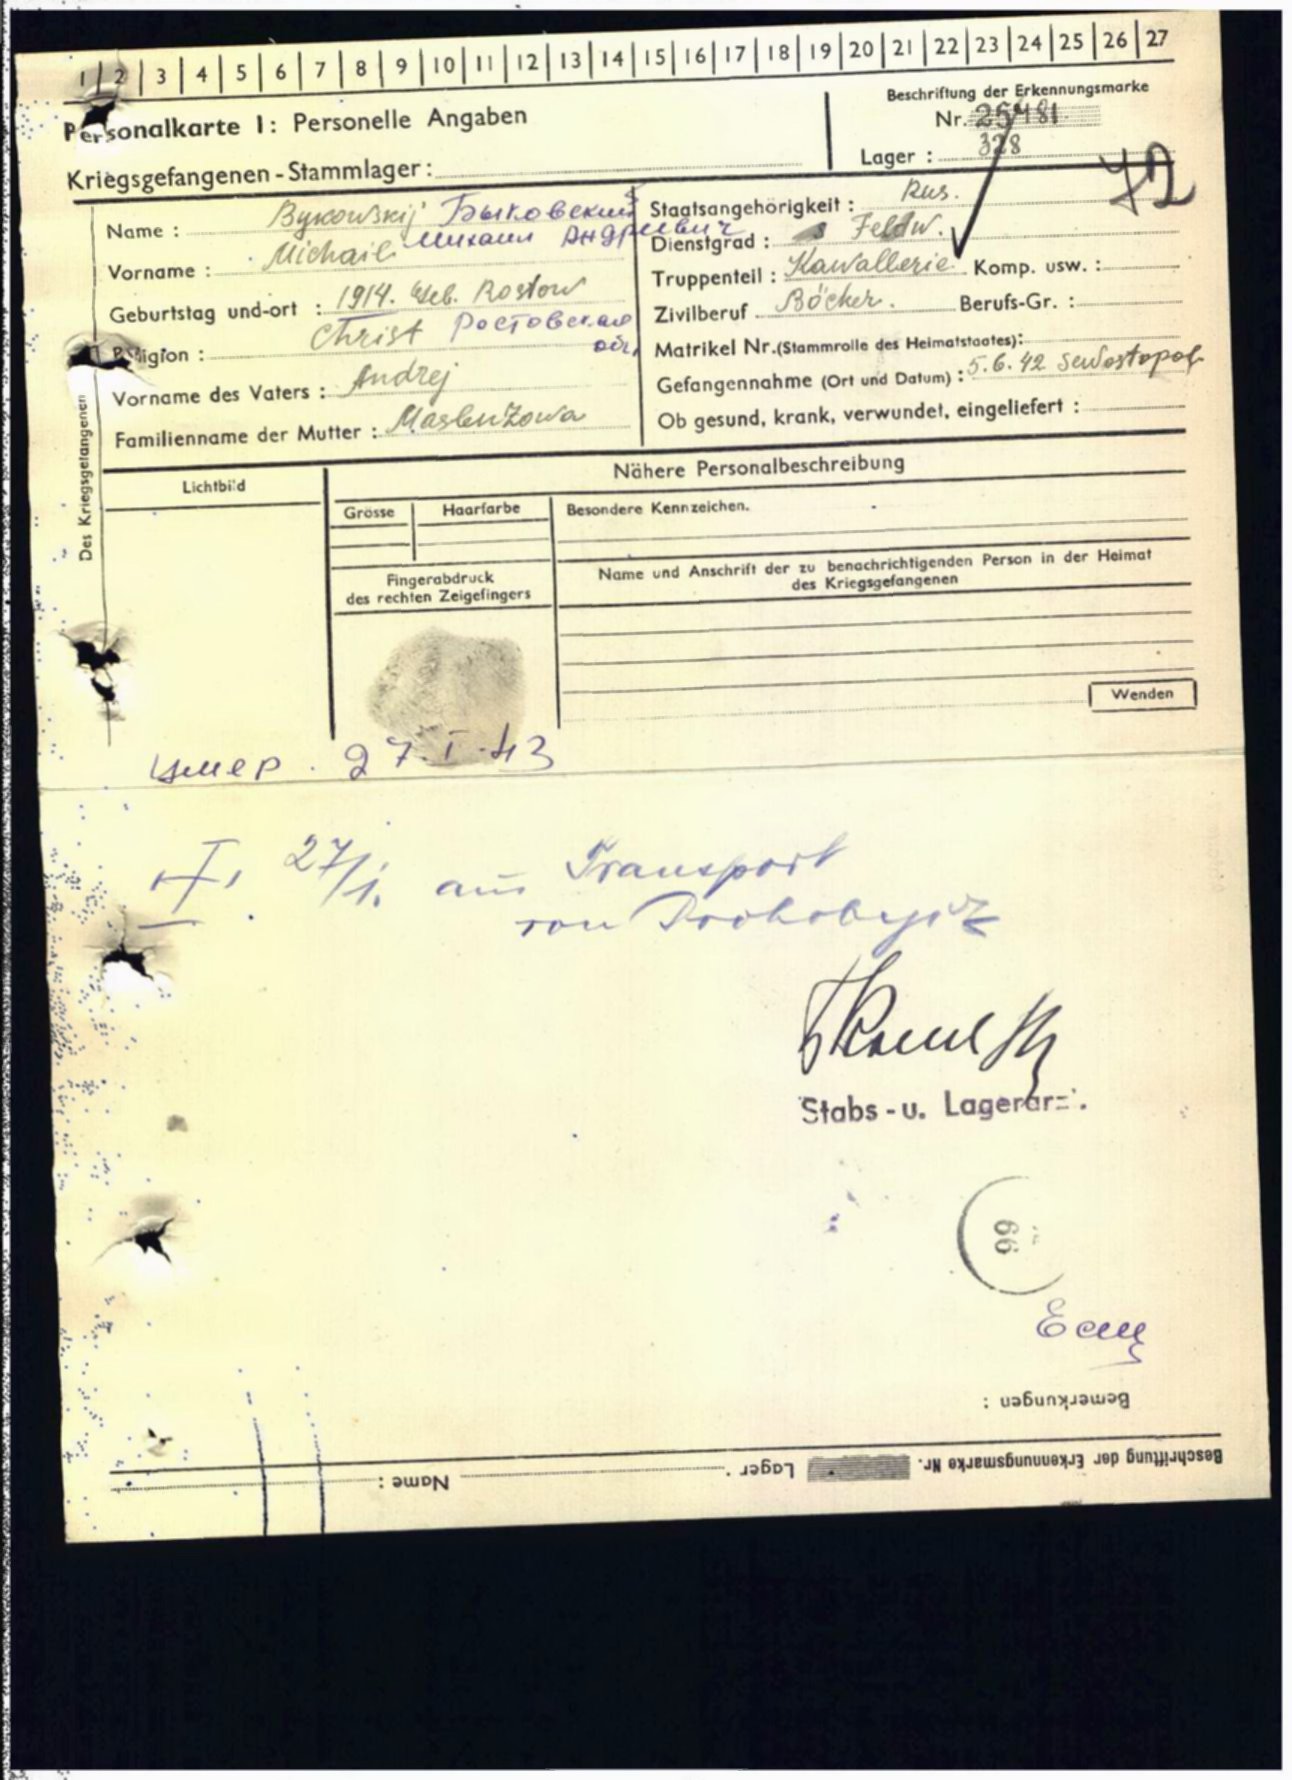 1 2 3 4 5 6 7 8 9 10 11 12 13 14 15 16 17 18 19 20 21 22 23 24 25 26 27
Personalkarte I: Personelle Angaben
Kriegsgefangenen-Stammlager:
Beschriftung der Erkennungsmarke
Nr. 25481
Lager : 328
72
Des Kriegsgefangenen
Name : Bykowskij Быковский
Михаил Андреевич
Vorname : Michail
Geburtstag und-ort : 1914. Geb. Rostow
Religion : Christ Ростовская
Vorname des Vaters : Andrej
Familienname der Mutter :
Staatsangehörigkeit : Rus.
Dienstgrad : Feldw.
Truppenteil : Kawallerie Komp. usw. :
Zivilberuf Böcker. Berufs-Gr. :
Matrikel Nr. (Stammrolle des Heimatstaates):
Gefangennahme (Ort und Datum) : 5.6.42 Sewostopol
Ob gesund, krank, verwundet, eingeliefert :
Lichtbild
Nähere Personalbeschreibung
Grösse Haarfarbe Besondere Kennzeichen.
Fingerabdruck
des rechten Zeigefingers
Name und Anschrift der zu benachrichtigenden Person in der Heimat
des Kriegsgefangenen
Wenden
умер. 27.I.43
27/1. aus Transport
von Drohobycz
Stabs-u. Lagerarzt.
66
Bemerkungen :
Beschriftung der Erkennungsmarke Nr. Lager . Name :